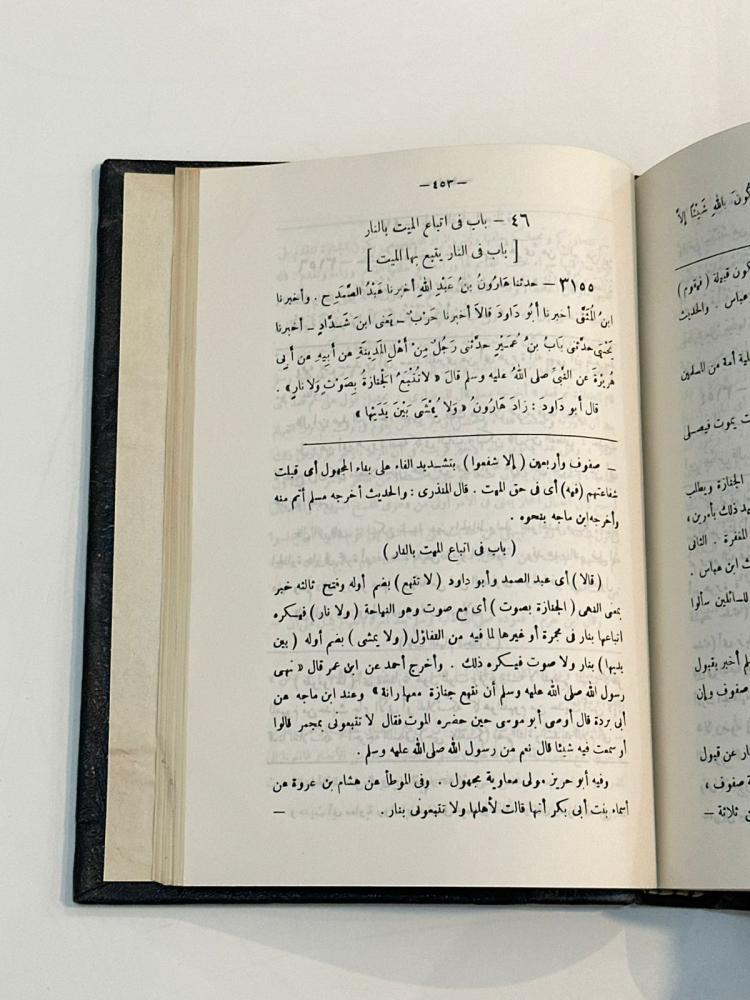 — ٤٥٣ —
٤٦ — باب فى اتباع الميت بالنار
[ باب فى النار يتبع بها الميت ]
٣١٥٥ — حدثنا هَارُونُ بنُ عَبْدِ اللهِ أخبرنا عَبْدُ الصَّمَدِ ح . وأخبرنا
ابنُ المُثَنَّى أخبرنا أبُو دَاودَ قالاَ أخبرنا حَرْبٌ – يَعْنى ابنَ شَدَّادٍ – أخبرنا
يَحْيَى حدَّثَنى بَابُ بنُ عُمَيْرٍ حدَّثنى رَجُلٌ مِنْ أهْلِ المَدِينَةِ عن أبِيهِ عن أبِى
هُرَيْرَةَ عن النَّبىِّ صلى اللهُ عليه وسلم قالَ « لا تُتْبَعُ الْجَنَازَةُ بِصَوْتٍ وَلا نارٍ » .
قال أبو دَاودَ : زادَ هَارُونُ « وَلا يُمْشَى بَيْنَ يَدَيْهَا »
– صفوف وأربعون ( إلا شفعوا ) بتشديد الفاء على بناء المجهول أى قبلت
شفاعتهم ( فيه ) أى فى حق الميت . قال المنذرى : والحديث أخرجه مسلم أتم منه
وأخرجه ابن ماجه بنحوه .
( باب فى اتباع الميت بالنار )
( قالا ) أى عبد الصمد وأبو داود ( لا تتبع ) بضم أوله وفتح ثالثه خبر
بمعنى النهى ( الجنازة بصوت ) أى مع صوت وهو النياحة ( ولا نار ) فيكره
اتباعها بنار فى مجمرة أو غيرها لما فيه من التفاؤل ( ولا يمشى ) بضم أوله ( بين
يديها ) بنار ولا صوت فيكره ذلك . وأخرج أحمد عن ابن عمر قال « نهى
رسول الله صلى الله عليه وسلم أن نتبع جنازة معها رانة » وعند ابن ماجه عن
أبى بردة قال أوصى أبو موسى حين حضره الموت فقال لا تتبعونى بمجمر قالوا
أو سمعت فيه شيئا قال نعم من رسول الله صلى الله عليه وسلم .
وفيه أبو حريز مولى معاوية مجهول . وفى الموطأ عن هشام بن عروة عن
أسماء بنت أبى بكر أنها قالت لأهلها ولا تتبعونى بنار . –
بِاللهِ شَيْئًا إلاَّ
كون قبيلة ( فيقوم )
عباس . والحديث
عليه أمة من المسلمين
يموت فيصلى
الجنازة ويطلب
ذلك بأمرين ،
المغفرة . الثانى
ابن عباس .
للسائلين سألوا
أخبر بقبول
صفوف وإن
عن قبول
صفوف ،
ثلاثة –